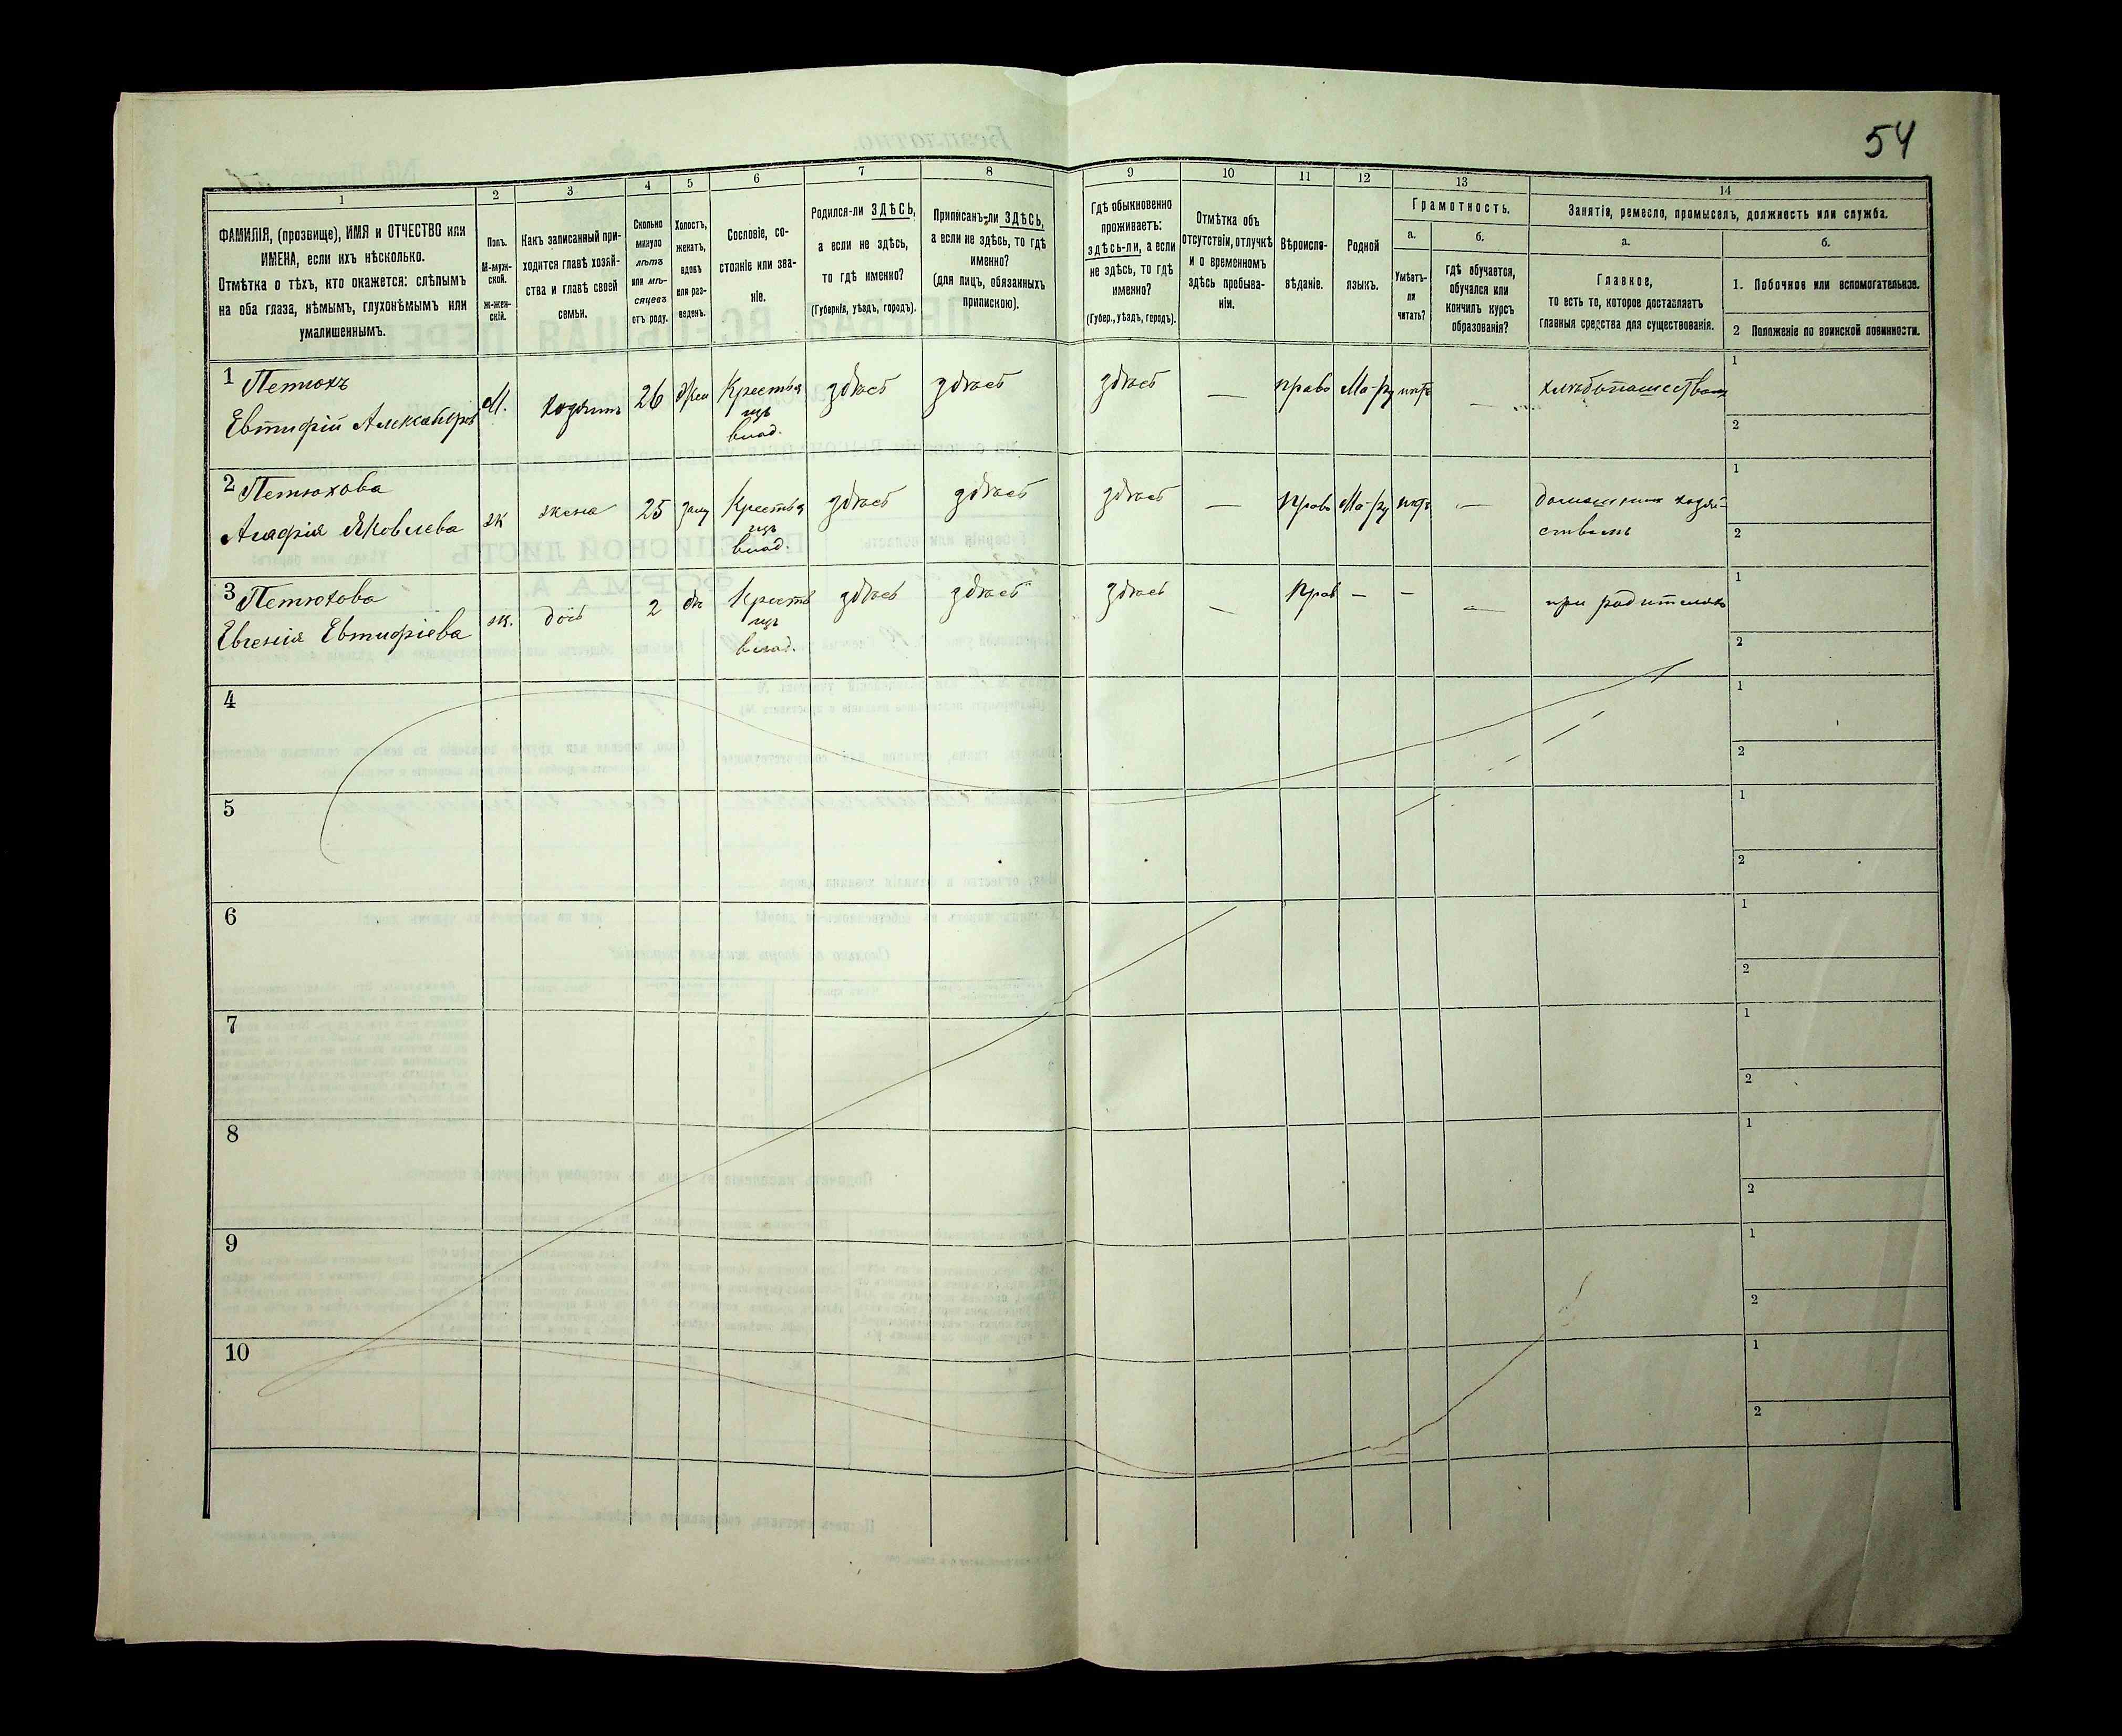 54
1
2
3
4
5
6
7
8
9
10
11
12
13
14
ФАМИЛІЯ, (прозвище), ИМЯ и ОТЧЕСТВО или
ИМЕНА, если ихъ нѣсколько.
Отмѣтка о тѣхъ, кто окажется: слѣпымъ
на оба глаза, нѣмымъ, глухонѣмымъ или
умалишеннымъ.
Полъ.
М-муж-
ской.
Ж-жен-
скій.
Какъ записанный при-
ходится главѣ хозяй-
ства и главѣ своей
семьи.
Сколько
минуло
лѣтъ
или мѣ-
сяцевъ
отъ роду.
Холостъ,
женатъ,
вдовъ
или раз-
веденъ.
Сословіе, со-
стояніе или зва-
ніе.
Родился-ли ЗДѢСЬ,
а если не здѣсь,
то гдѣ именно?
(Губернія, уѣздъ, городъ).
Приписанъ-ли ЗДѢСЬ,
а если не здѣсь, то гдѣ
именно?
(для лицъ, обязанныхъ
припискою).
Гдѣ обыкновенно
проживаетъ:
здѣсь-ли, а если
не здѣсь, то гдѣ
именно?
(Губер., уѣздъ, городъ).
Отмѣтка объ
отсутствіи, отлучкѣ
и о временномъ
здѣсь пребыва-
ніи.
Вѣроиспо-
вѣданіе.
Родной
языкъ.
Грамотность.
а.
Умѣетъ-
ли
читать?
б.
гдѣ обучается,
обучался или
кончилъ курсъ
образованія?
Занятія, ремесло, промыселъ, должность или служба.
а.
Главное,
то есть то, которое доставляетъ
главныя средства для существованія.
б.
1. Побочное или вспомогательное.
2 Положеніе по воинской повинности.
1 Петюхъ
Евтифій Александров
М.
хозяинъ
26
Жен
Крестья
нцъ
влад.
здѣсь
здѣсь
здѣсь
—
право
Ма-ру
нѣтъ
—
хлѣбопашествомъ
1
2
2 Петюхова
Агафія Яковлева
ж
жена
25
зам
Крестья
нцъ
влад.
здѣсь
здѣсь
здѣсь
—
право
Ма-ру
нѣтъ
—
домашнимъ хозяй-
ствомъ
1
2
3 Петюхова
Евгенія Евтифіева
ж.
дочь
2
дѣ
Крестья
нцъ
влад.
здѣсь
здѣсь
здѣсь
—
Прав
—
—
—
при родителяхъ
1
2
4
1
2
5
1
2
6
1
2
7
1
2
8
1
2
9
1
2
10
1
2